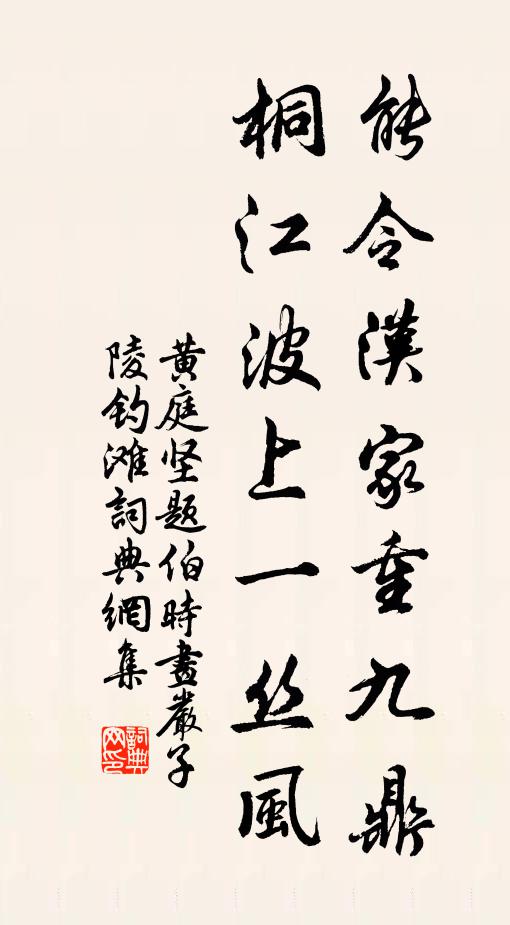 能令漢家重九鼎
桐江波上一丝風
黄庭坚题伯時畫嚴子
陵钓滩詞典網集
詞典
网印